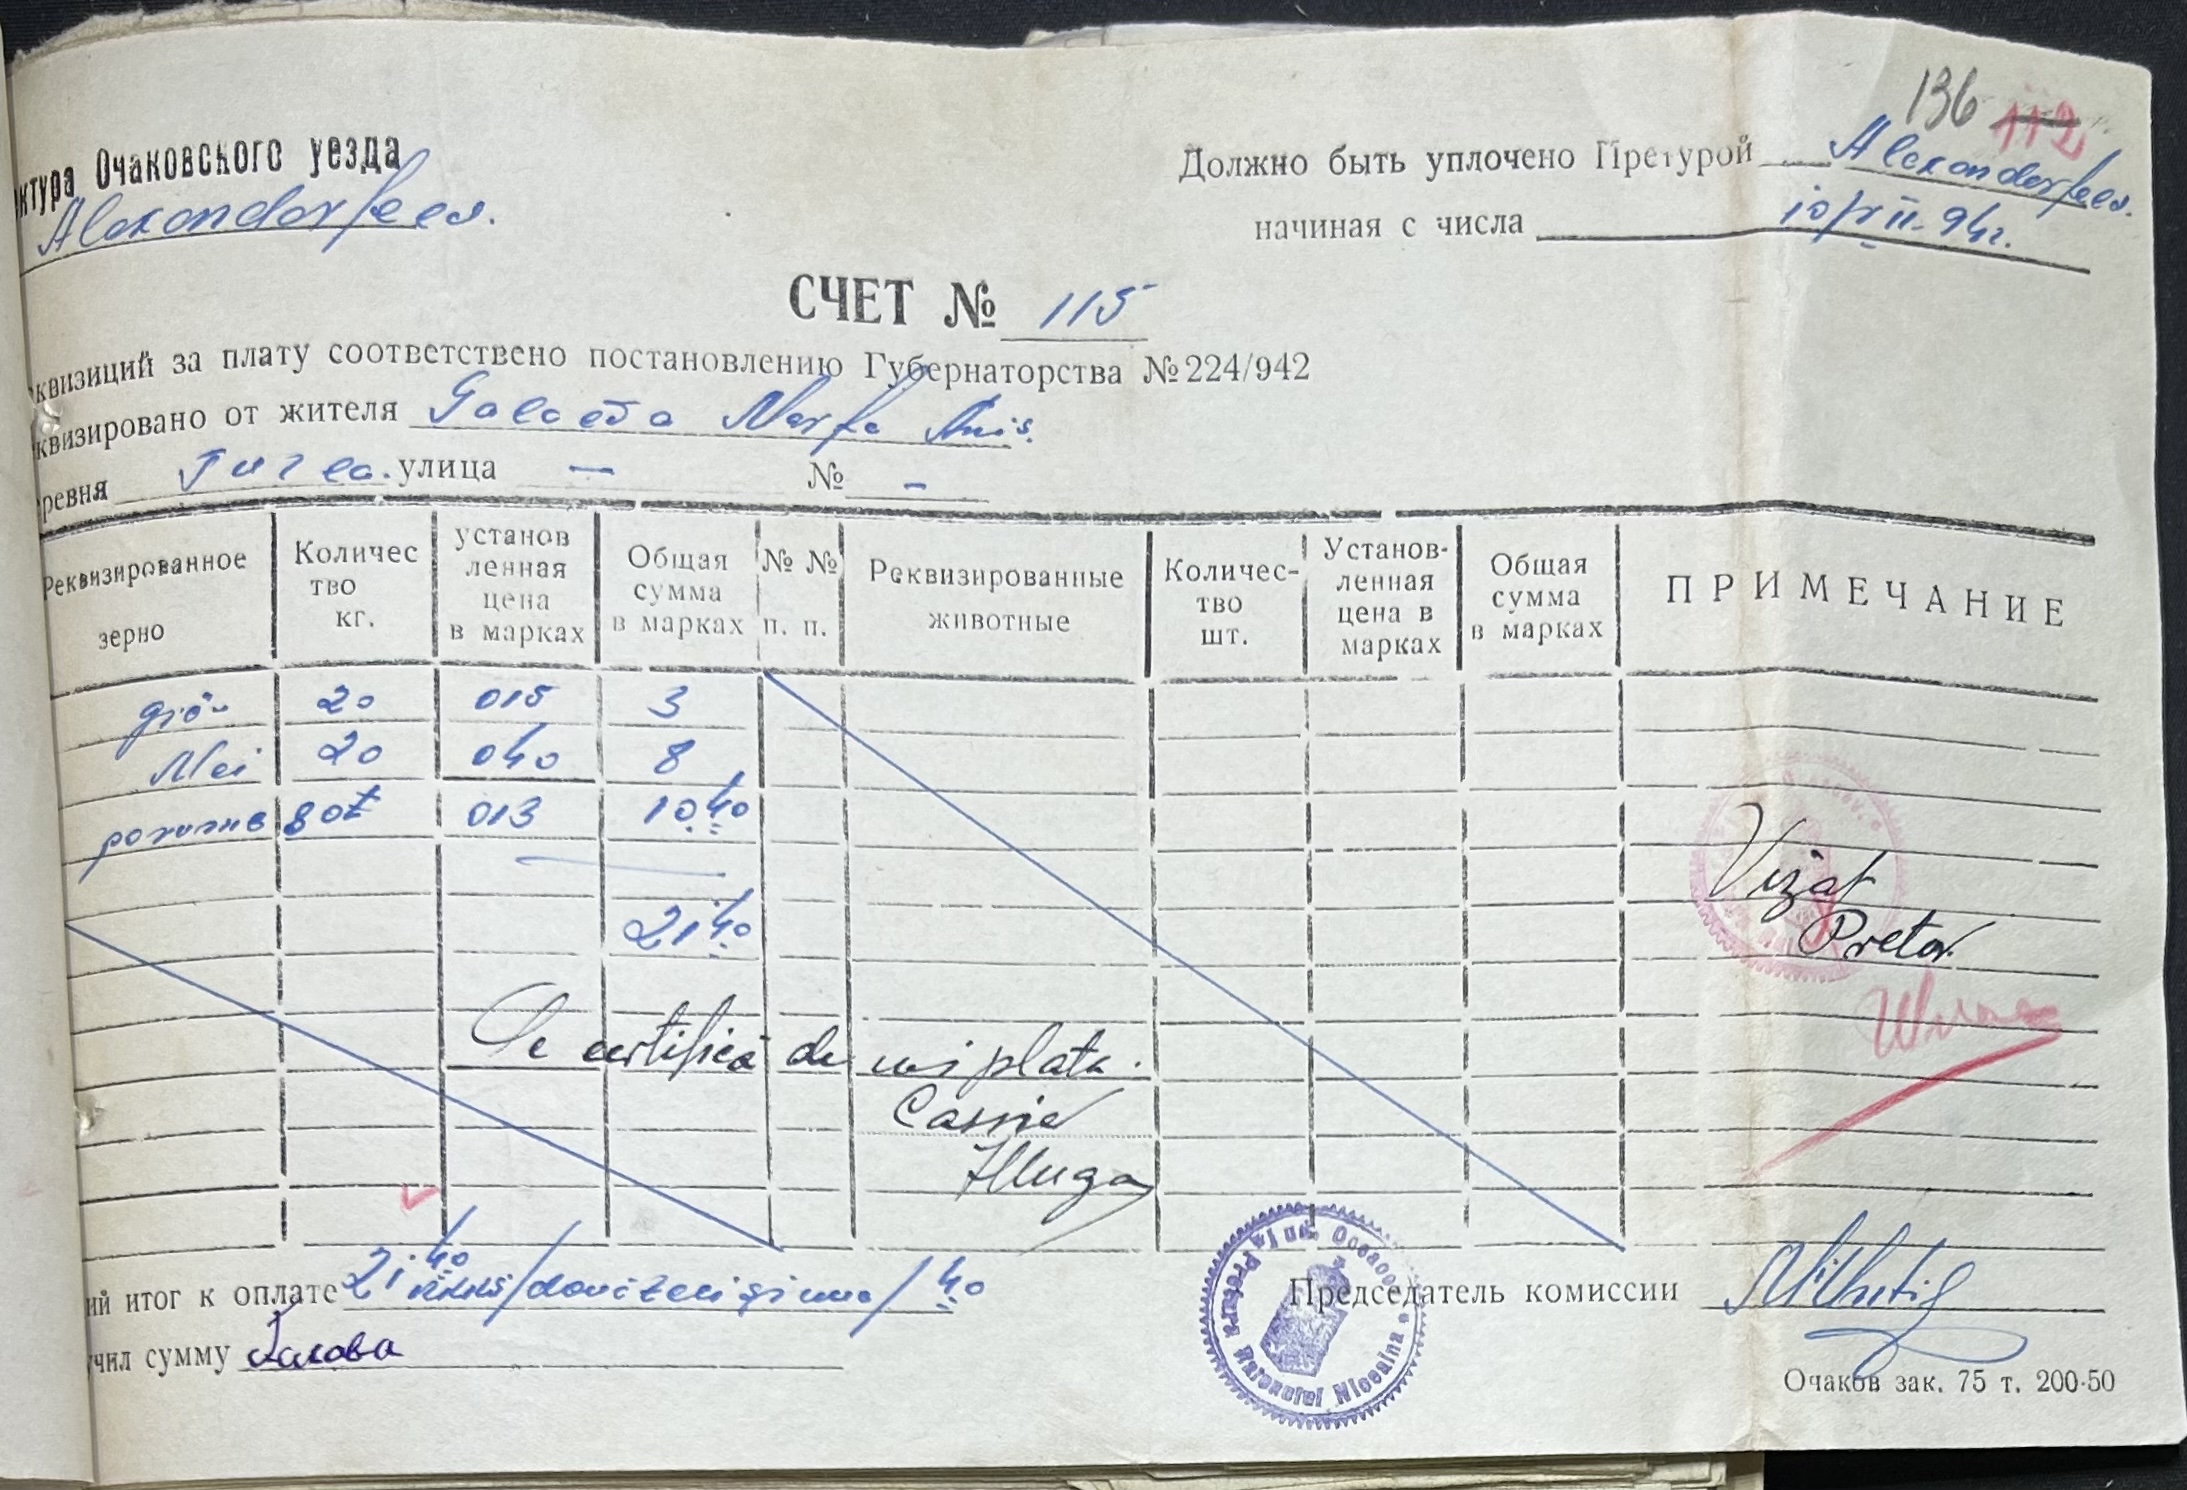 136 112
ктура Очаковского уезда
Alexandorfeld.
Должно быть уплочено Претурой Alexandorfeld.
начиная с числа 10/XII-942.
СЧЕТ № 115
квизиций за плату соответствено постановлению Губернаторства № 224/942
квизировано от жителя
ревня улица — № -
Реквизированное зерно
Количес тво кг.
установ ленная цена в марках
Общая сумма в марках
№ № п. п.
Реквизированные животные
Количес- тво шт.
Установ- ленная цена в марках
Общая сумма в марках
ПРИМЕЧАНИЕ
grâu 20 015 3
Mei 20 040 8
porumb 80 013 10.40
21.40
Vizat
Pretor
Se certifică de plata.
Casier
ий итог к оплате 21.40 /douăzeci și una/ 40
Председатель комиссии
чил сумму
Pretura Raionului Nicolaina Jud. Oceacov
Очаков зак. 75 т. 200-50